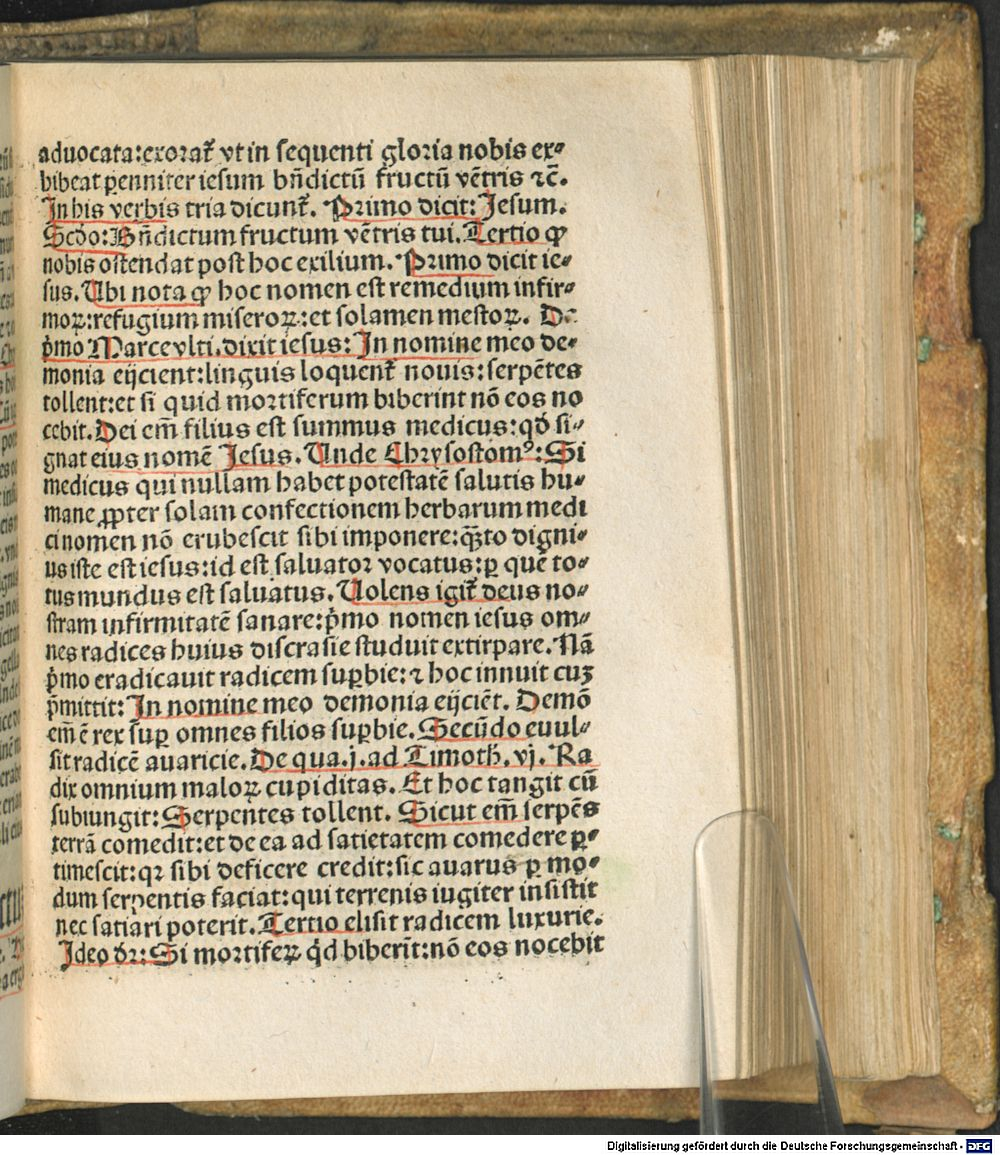 aduocata:exorat᷑ vt in sequenti gloria nobis ex⸗
hibeat ꝑenniter iesum bñdictū fructū vētris ⁊c̄.
In his verbis tria dicunt᷑. Primo dicit: Jesum.
Scd̄o: Bñdictum fructum vētris tui. Tertio ꝙ
nobis ostendat post hoc exilium. Primo dicit ie⸗
sus. Ubi nota ꝙ hoc nomen est remedium infir⸗
moꝝ: refugium miseroꝝ: et solamen mestoꝝ. De
p̄mo Marce vlti. dixit iesus: In nomine meo de⸗
monia eijcient: linguis loquent᷑ nouis: serpētes
tollent: et si quid mortiferum biberint nō eos no
cebit. Dei em̄ filius est summus medicus: qd̄ si⸗
gnat eius nomē Jesus. Unde Chrysostomꝰ: Si
medicus qui nullam habet potestatē salutis hu⸗
mane ꝓpter solam confectionem herbarum medi
ci nomen nō erubescit sibi imponere: q̄ꝫto digni⸗
us iste est iesus: id est saluator vocatus: ꝑ quē to⸗
tus mundus est saluatus. Uolens igit᷑ deus no⸗
stram infirmitatē sanare: p̄mo nomen iesus om⸗
nes radices huius discrasie studuit extirpare. Nā
p̄mo eradicauit radicem suꝑbie: ⁊ hoc innuit cuꝫ
p̄mittit: In nomine meo demonia eijciēt. Demō
em̄ ē rex suꝑ omnes filios suꝑbie. Secūdo euul⸗
sit radicē auaricie. De qua .j. ad Timoth̄. vj. Ra
dix omnium maloꝝ cupiditas. Et hoc tangit cū
subiungit: Serpentes tollent. Sicut em̄ serpēs
terrā comedit: et de ea ad satietatem comedere ꝑ⸗
timescit: qꝛ sibi deficere credit: sic auarus ꝑ mo⸗
dum serpentis faciat: qui terrenis iugiter insistit
nec satiari poterit. Tertio elisit radicem luxurie.
Ideo dꝛ: Si mortifeꝝ qd̄ biberīt: nō eos nocebit
Digitalisierung gefördert durch die Deutsche Forschungsgemeinschaft - DFG